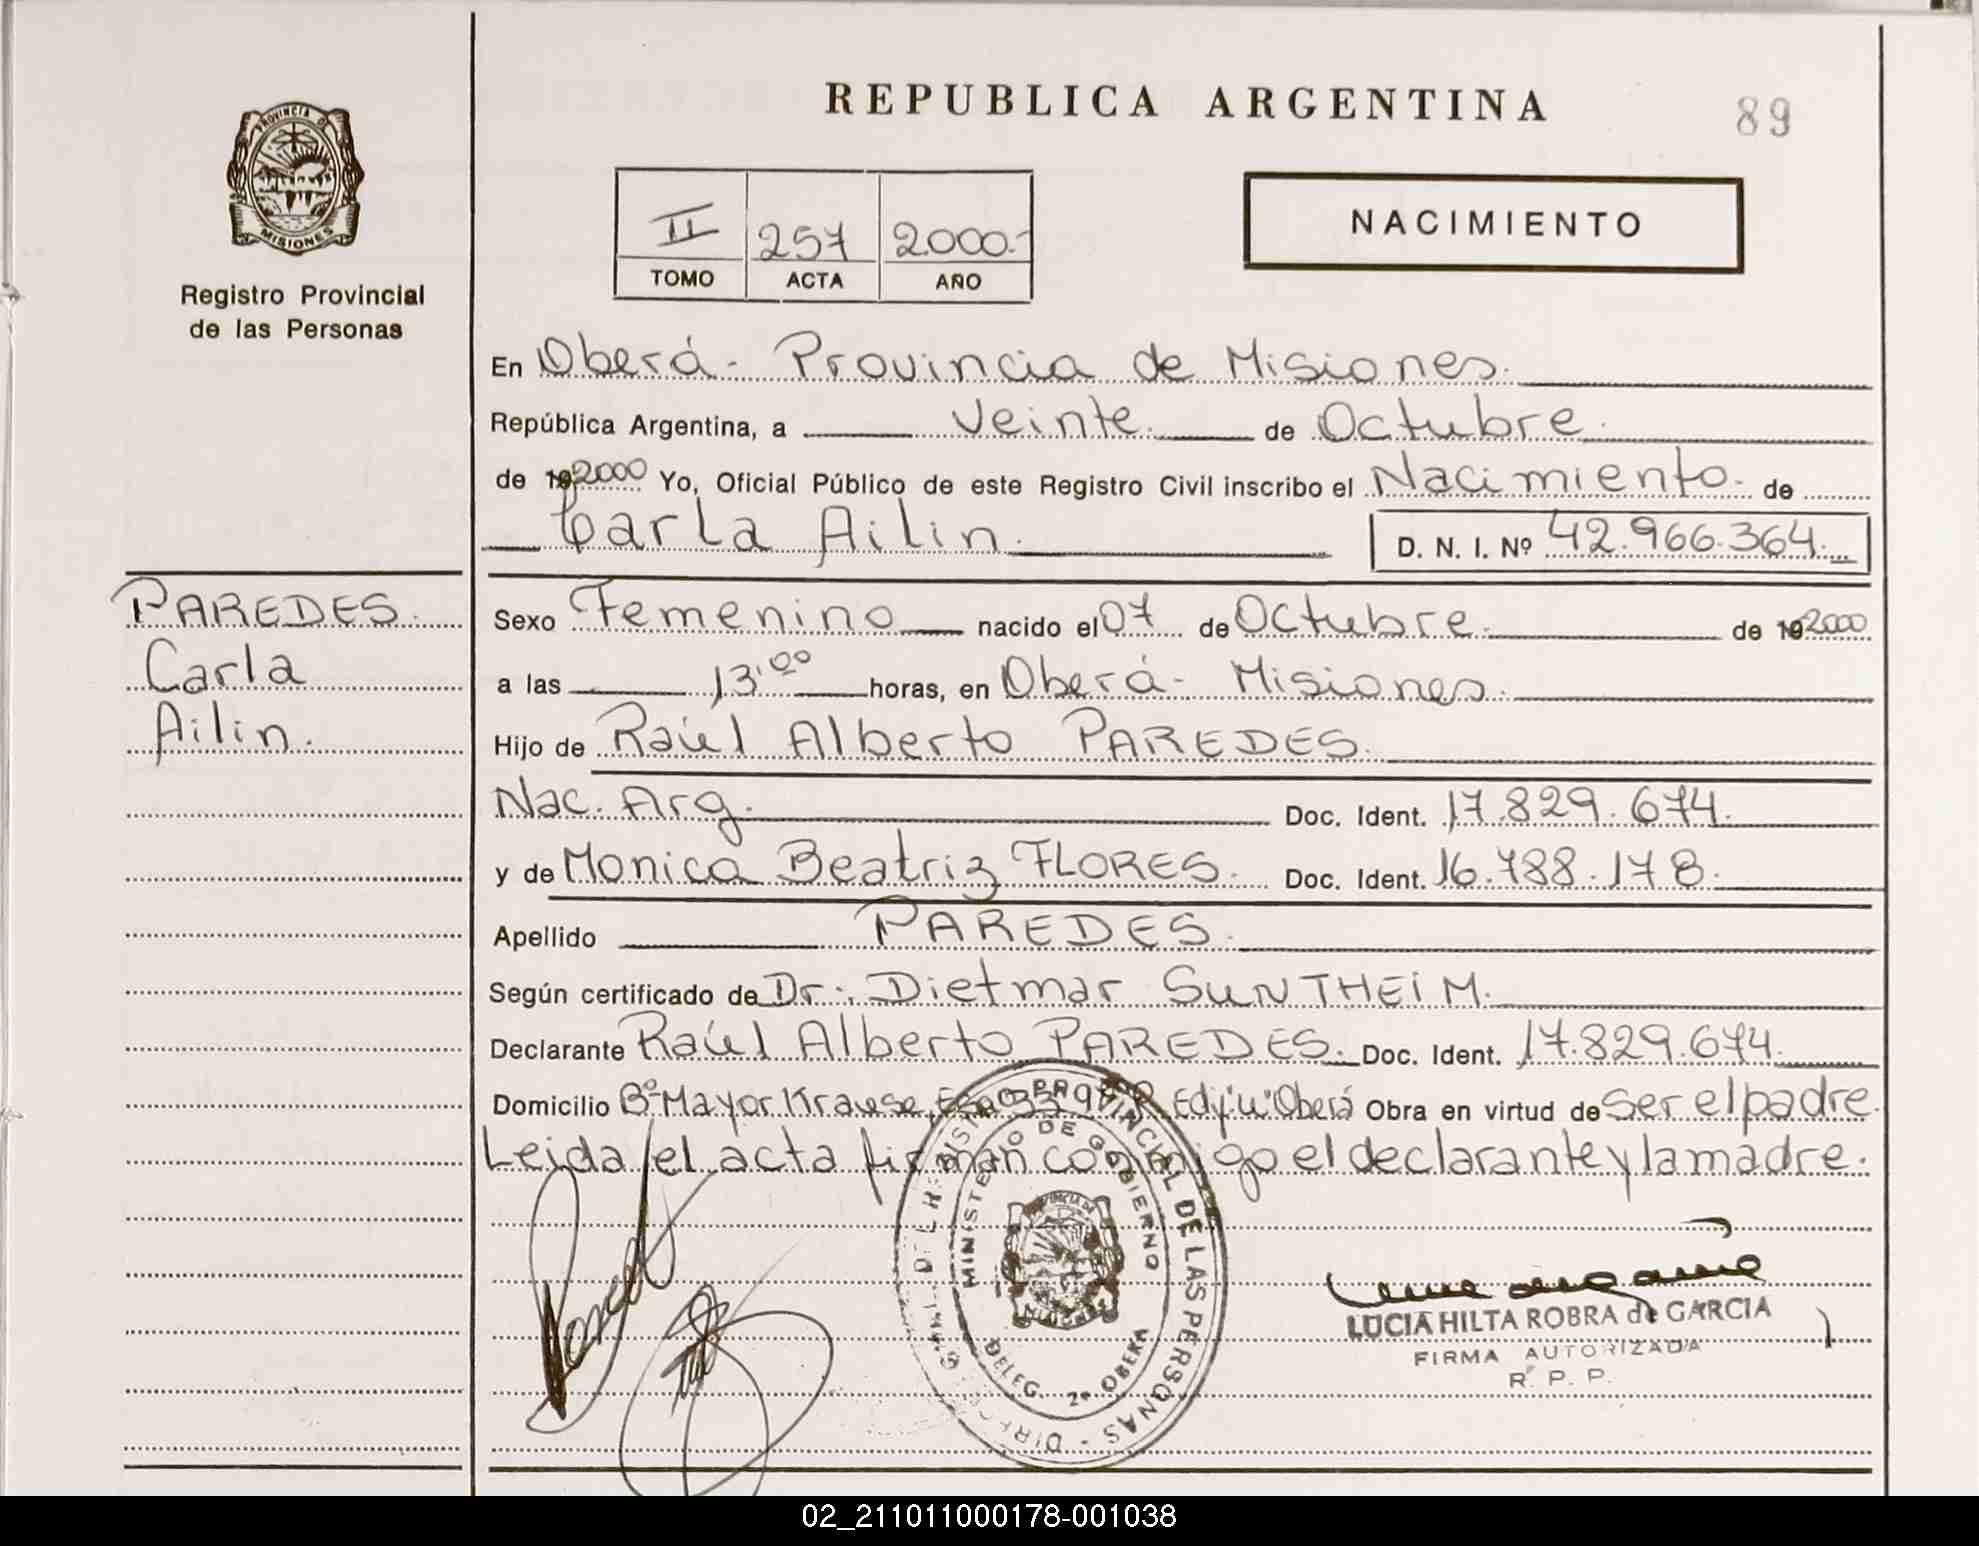 REPUBLICA ARGENTINA
89
PROVINCIA DE
MISIONES
Registro Provincial
de las Personas
II 257 2000.-
TOMO ACTA AÑO
NACIMIENTO
En Oberá - Provincia de Misiones.
República Argentina, a Veinte. de Octubre.
de 192000 Yo, Oficial Público de este Registro Civil inscribo el Nacimiento. de
Carla Ailin. D. N. I. Nº 42.966.364.
PAREDES.
Carla
Ailin.
Sexo Femenino nacido el 07 de Octubre. de 192000
a las 13.00 horas, en Oberá - Misiones.
Hijo de Raúl Alberto PAREDES.
Nac. Arg. Doc. Ident. 17.829.674.
y de Monica Beatriz FLORES. Doc. Ident. 16.788.178.
Apellido PAREDES.
Según certificado de Dr. Dietmar SUNTHEIM.
Declarante Raúl Alberto PAREDES. Doc. Ident. 17.829.674.
Domicilio Bº Mayor Krause, Oberá Obra en virtud de Ser el padre.
Leida el acta firman conmigo el declarante y la madre.
PROVINCIAL DE LAS PERSONAS
MINISTERIO DE GOBIERNO
DELEG. 2ª OBERA
LUCIA HILTA ROBRA de GARCIA
FIRMA AUTORIZADA
R. P. P.
02_211011000178-001038